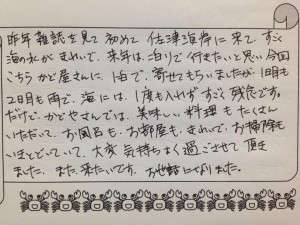 昨年雑誌を見て初めて佐津海岸に来て、すごく
海の水がきれいで、来年は、泊りで行きたいと思い今回
こちらかど屋さんに、1泊で、寄せてもらいましたが1日目も
2日目も雨で、海には、1度も入れずすごく残念です。
だけど、かどやさんでは、美味しい料理もたくさん
いただいて、お風呂も、お部屋も、きれいで、お掃除も
いきとどいていて、大変気持ちよく過ごさせて頂き
ました。また、来たいです。お世話になりました。